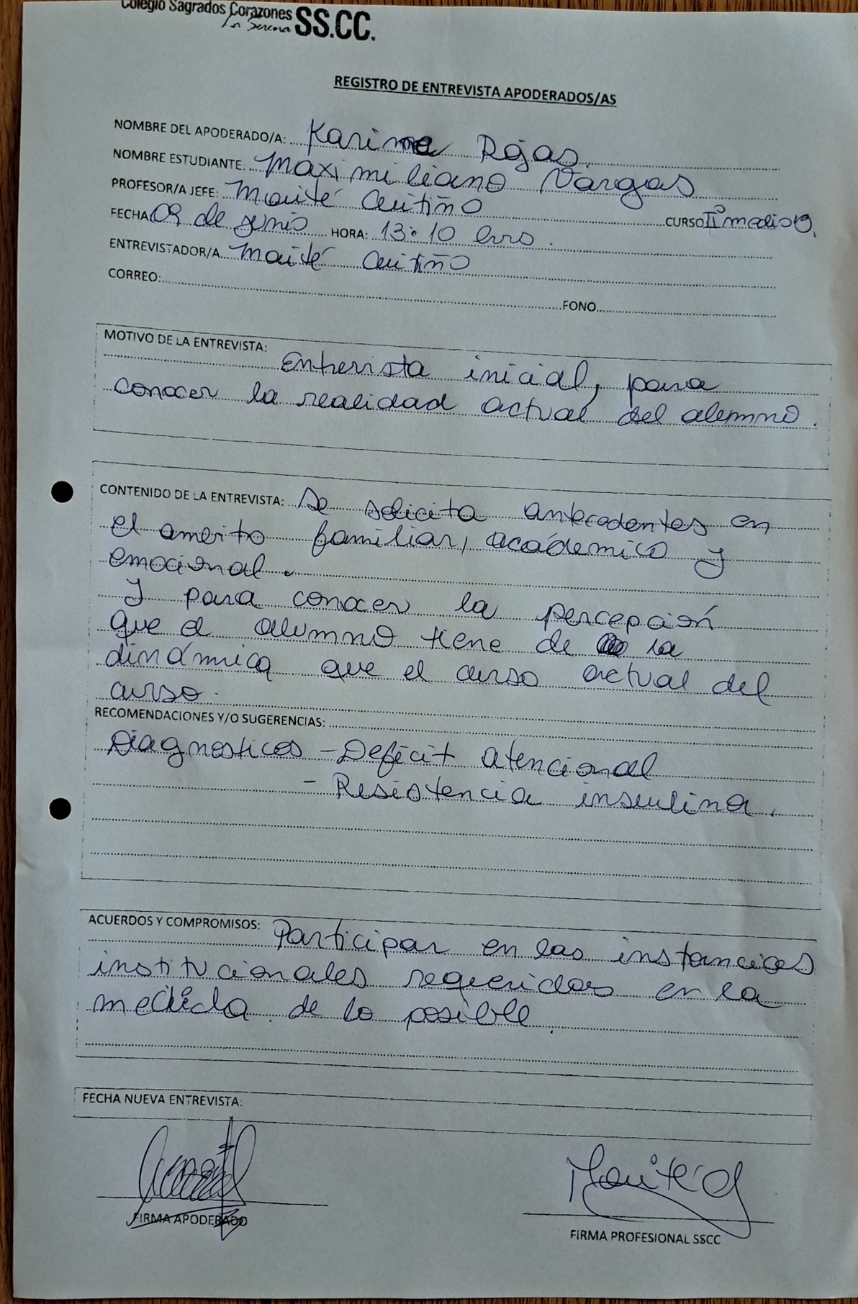 Colegio Sagrados Corazones SS.CC.
La Serena
REGISTRO DE ENTREVISTA APODERADOS/AS
NOMBRE DEL APODERADO/A: Karina Rojas.
NOMBRE ESTUDIANTE: Maximiliano Vargas
PROFESOR/A JEFE: Maité Cuitiño CURSO II° medio B.
FECHA: 09 de Junio HORA: 13:10 hrs.
ENTREVISTADOR/A Maité Cuitiño
CORREO: FONO
MOTIVO DE LA ENTREVISTA: Entrevista inicial, para
conocer la realidad actual del alumno.
CONTENIDO DE LA ENTREVISTA: Se solicita antecedentes en
el ambito familiar, académico y
emocional.
Y para conocer la percepción
que el alumno tiene de la
dinámica que el curso actual del
curso.
RECOMENDACIONES Y/O SUGERENCIAS:
Diagnosticos - Deficit atencional
- Resistencia insulina.
ACUERDOS Y COMPROMISOS: Participar en las instancias
institucionales requeridas en la
medida de lo posible.
FECHA NUEVA ENTREVISTA:
Maité C
FIRMA APODERADO
FIRMA PROFESIONAL SSCC